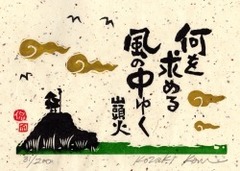 何を
求める
風の中ゆく
山頭火
91/200 Kozaki Kan